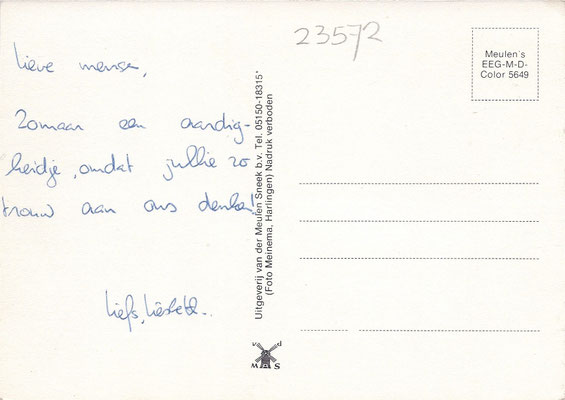 23572
Meulen's
EEG-M-D-
Color 5649
lieve mensen,
Zomaar een aardig-
heidje, omdat jullie zo
trouw aan ons denken!
liefs,
Uitgeverij van der Meulen Sneek b.v. Tel. 05150-18315*
(Foto Meinema, Harlingen) Nadruk verboden
v d
M S